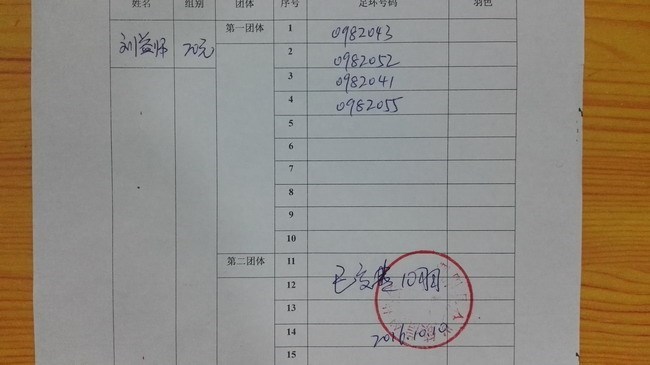 姓名 组别 团体 序号 足环号码 羽色
刘益师 20元 第一团体 1 0982043
2 0982052
3 0982041
4 0982055
5
6
7
8
9
10
第二团体 11
12 已交
13
14
15